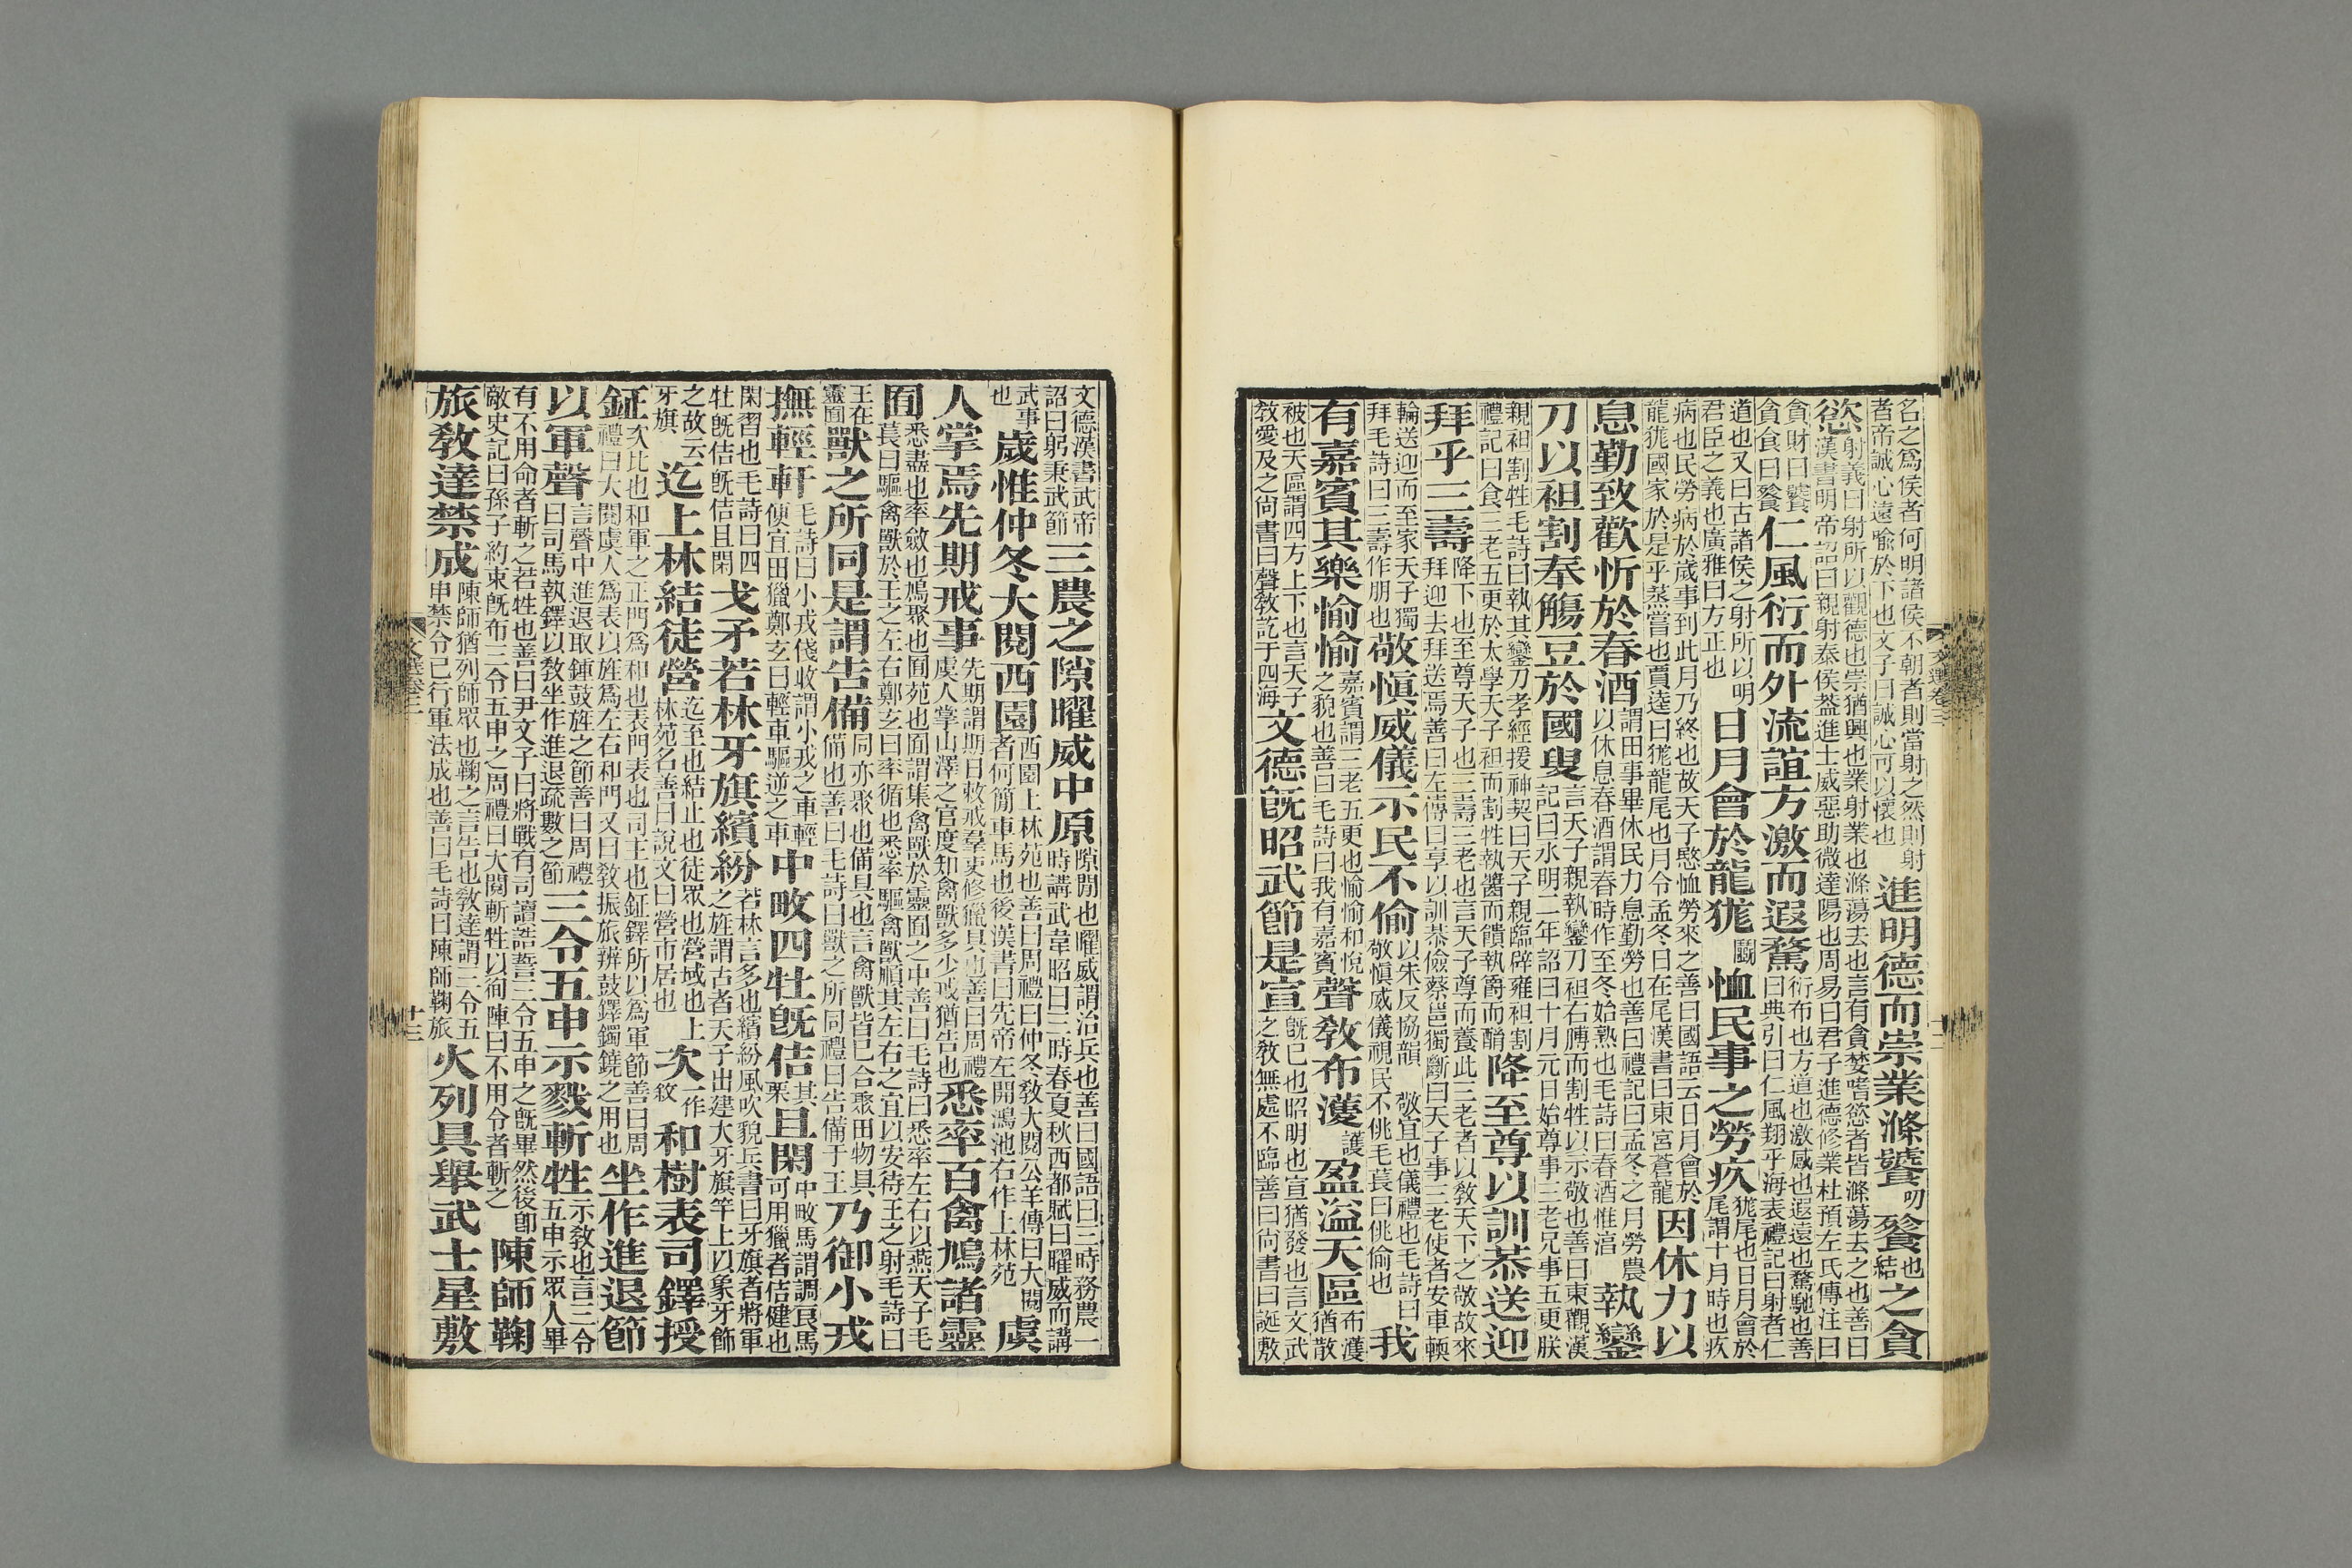 名之爲侯者何明諸侯不朝者則當射之然則射
者帝誠心遠喻於下也文子曰誠心可以懷也
進明德而崇業滌饕叨餮結也之貪
慾
射義曰射所以觀德也崇猶興也業射業也滌蕩去也言有貪婪嗜慾者皆滌蕩去之也善曰
漢書明帝詔曰親射泰侯葢進士威惡助微達陽也周易曰君子進德修業杜預左氏傳注曰
貪財曰饕
貪食曰餮
仁風衍而外流誼方激而遐騖
衍布也方道也激感也遐遠也騖馳也善
曰典引曰仁風翔乎海表禮記曰射者仁
道也又曰古諸侯之射所以明
君臣之義也廣雅曰方正也
日月會於龍狵鬬恤民事之勞疚
狵尾也日月會於
尾謂十月時也疚
病也民勞病於歲事到此月乃終也故天子愍恤勞來之善曰國語云日月會於
龍狵國家於是乎蒸嘗也賈逵曰狵龍尾也月令孟冬日在尾漢書曰東宮蒼龍
因休力以
息勤致歡忻於春酒
謂田事畢休民力息勤勞也善曰禮記曰孟冬之月勞農
以休息春酒謂春時作至冬始熟也毛詩曰春酒惟湑
執鑾
刀以袒割奉觴豆於國叟
言天子親執鑾刀袒右膊而割牲以示敬也善曰東觀漢
記曰永明二年詔曰十月元日始尊事三老兄事五更朕
親袒割牲毛詩曰執其鑾刀孝經援神契曰天子親臨辟雍袒割
禮記曰食三老五更於太學天子袒而割牲執醬而饋執爵而酳
降至尊以訓恭送迎
拜乎三壽
降下也至尊天子也三壽三老也言天子尊而養此三老者以敎天下之敬故來
拜迎去拜送焉善曰左傳曰享以訓恭儉蔡邕獨斷曰天子事三老使者安車輭
輪送迎而至家天子獨
拜毛詩曰三壽作朋也
敬愼威儀示民不偷
以朱反協韻 敬宜也儀禮也毛詩曰
敬愼威儀視民不佻毛萇曰佻偷也
我
有嘉賓其樂愉愉
嘉賓謂三老五更也愉愉和悅
之貌也善曰毛詩曰我有嘉賓
聲敎布濩護盈溢天區
布濩
猶散
被也天區謂四方上下也言天子
敎愛及之尙書曰聲敎訖于四海
文德旣昭武節是宣
旣巳也昭明也宣猶發也言文武
之敎無處不臨善曰尙書曰誕敷
文選卷三
十二
文德漢書武帝
詔曰躬秉武節
三農之隙曜威中原
隙閒也曜威謂治兵也善曰國語曰三時務農一
時講武韋昭曰三時春夏秋西都賦曰曜威而講
武事
也
歲惟仲冬大閱西園
西園上林苑也善曰周禮曰仲冬敎大閱公羊傳曰大閱
者何簡車馬也後漢書曰先帝左開鴻池右作上林苑
虞
人掌焉先期戒事
先期謂期日敕戒羣吏修獵具也善曰周禮
虞人掌山澤之官度知禽獸多少戒猶告也
悉率百禽鳩諸靈
囿
悉盡也率斂也鳩聚也囿苑也囿謂集禽獸於靈囿之中善曰毛詩曰悉率左右以燕天子毛
萇曰驅禽獸於王之左右鄭玄曰率循也悉率驅禽獸順其左右之宜以安待王之射毛詩曰
王在
靈囿
獸之所同是謂告備
同亦聚也備具也言禽獸皆巳合聚田物具
備也善曰毛詩曰獸之所同禮曰告備于王
乃御小戎
撫輕軒
毛詩曰小戎俴收謂小戎之車輕
便宜田獵鄭玄曰輕車驅逆之車
中畋四牡旣佶其栗且閑
中畋馬謂調良馬
可用獵者佶健也
閑習也毛詩曰四
牡旣佶旣佶且閑
戈矛若林牙旗繽紛
若林言多也繽紛風吹貌兵書曰牙旗者將軍
之旌謂古者天子出建大牙旗竿上以象牙飾
之故云
牙旗
迄上林結徒營
迄至也結止也徒眾也營域也上
林苑名善曰說文曰營市居也
次一作敘和樹表司鐸授
鉦
次比也和軍之正門爲和也表門表也司主也鉦鐸所以爲軍節善曰周
禮曰大閱虞人爲表以旌爲左右和門又曰敎振旅辨鼓鐸鐲鐃之用也
坐作進退節
以軍聲
言聲中進退取鍾鼓旌之節善曰周禮
曰司馬執鐸以敎坐作進退疏數之節
三令五申示戮斬牲
示敎也言三令
五申示眾人畢
有不用命者斬之若牲也善曰尹文子曰將戰有司讀誥誓三令五申之旣畢然後卽
敵史記曰孫子約束旣布三令五申之周禮曰大閱斬牲以徇陣曰不用令者斬之
陳師鞠
旅敎達禁成
陳師猶列師眾也鞠之言告也敎達謂三令五
申禁令已行軍法成也善曰毛詩曰陳師鞠旅
火列具舉武士星敷
文選卷三
十三